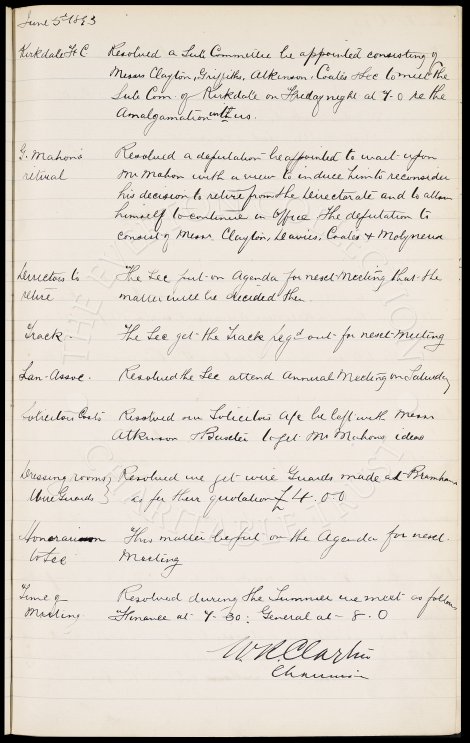 June 5th 1893
Kirkdale F.C. Resolved a Sub Committee be appointed consisting of
Messrs Clayton, Griffiths, Atkinson, Coates & Sec to meet the
Sub Com. of Kirkdale on Friday night at 7-0 re the
Amalgamation with us.
G. Mahon's Resolved a deputation be appointed to wait upon
retiral Mr Mahon with a view to induce him to reconsider
his decision to retire from the Directorate and to allow
himself to continue in Office the deputation to
consist of Messrs Clayton, Davies, Coates & Molyneux
Directors to The Sec put on Agenda for next Meeting that the
retire matter will be decided then.
Track. The Sec get the Track reqd out for next Meeting
Lan. Assoc. Resolved the Sec attend Annual Meeting on Saturday
Solicitors Costs Resolved our Solicitors a/c be left with Messrs
Atkinson & Baxter to get Mr Mahons ideas
Dressing rooms Resolved we get wire Guards made at
Wire Guards as per their quotation £4.0.0
Honorarium This matter be put on the Agenda for next
to Sec Meeting
Time of Resolved during the Summer we meet as follows
Meeting Finance at 7-30: General at 8.0
W.R. Clayton
Chairman